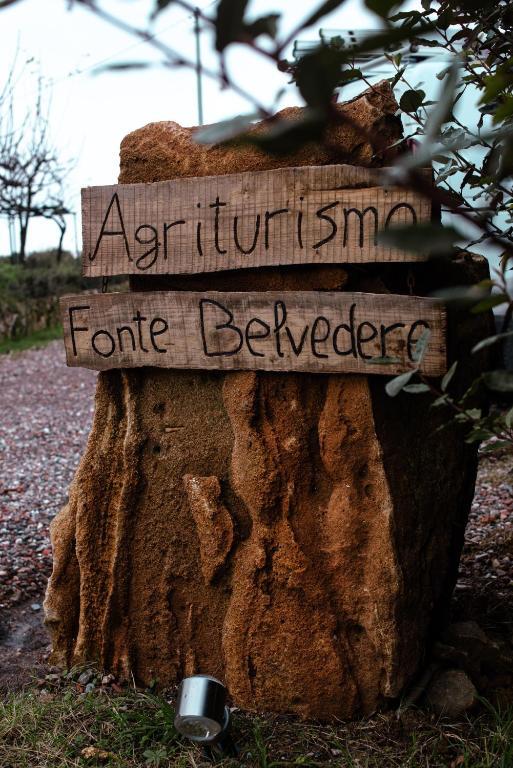 Agriturismo
Fonte Belvedere